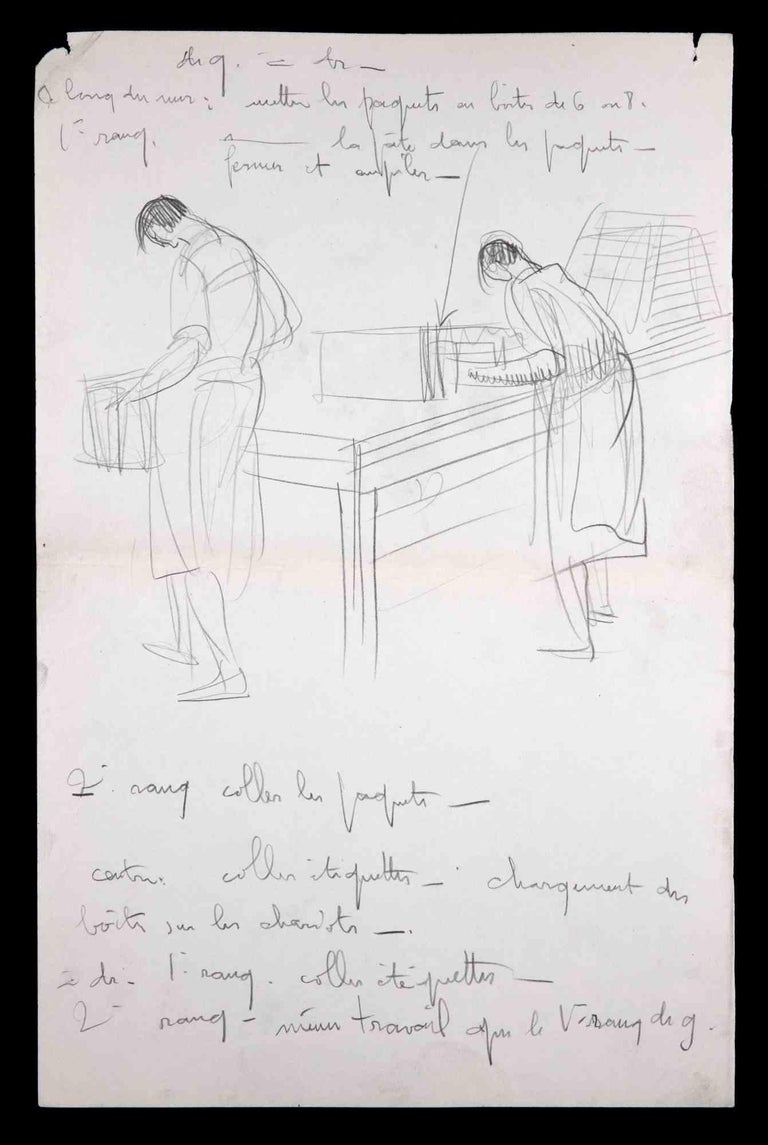 de g. = dr —
le long du mur : mettre les paquets en boîtes de 6 ou 8.
1er rang. la pâte dans les paquets —
fermer et empiler —
2e rang coller les paquets —
centre : coller étiquettes — chargement des
boîtes sur les chariots —.
= dr. 1er rang. coller étiquettes —
2e rang — même travail que le rang de g.